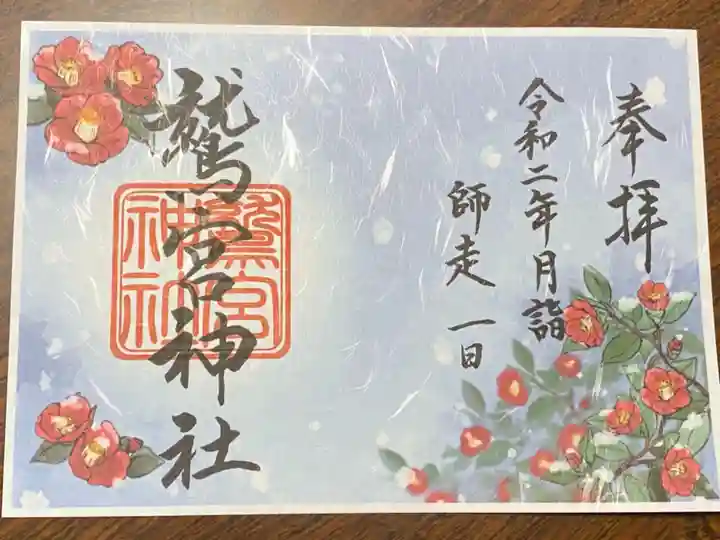 奉拝
令和二年月詣
師走一日
鷲宮神社
鷲宮
神社